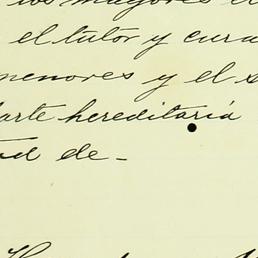 los mayores
el tutor y cura
menores y el s
parte hereditaria
tad de-